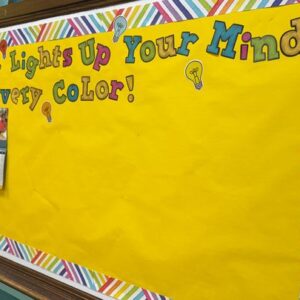 Lights Up Your Mind
very Color!